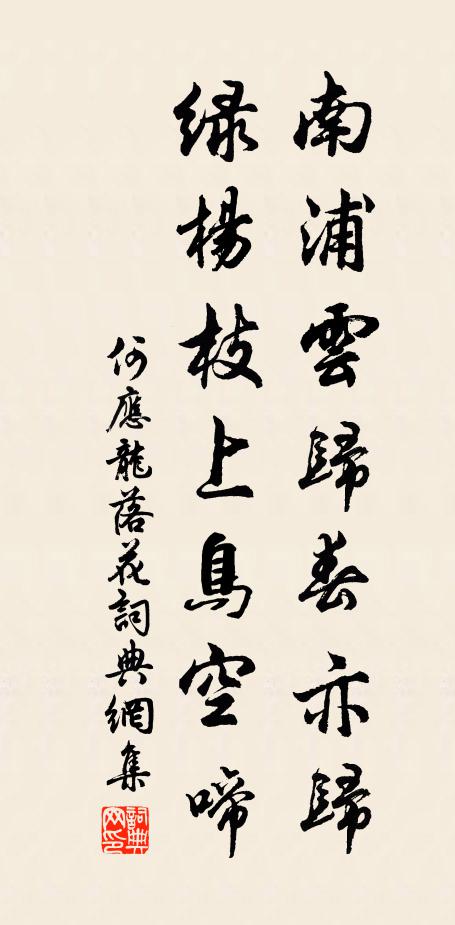 南浦雲歸春亦歸
綠楊枝上鳥空啼
何應龍落花詞典網集
詞典
网印